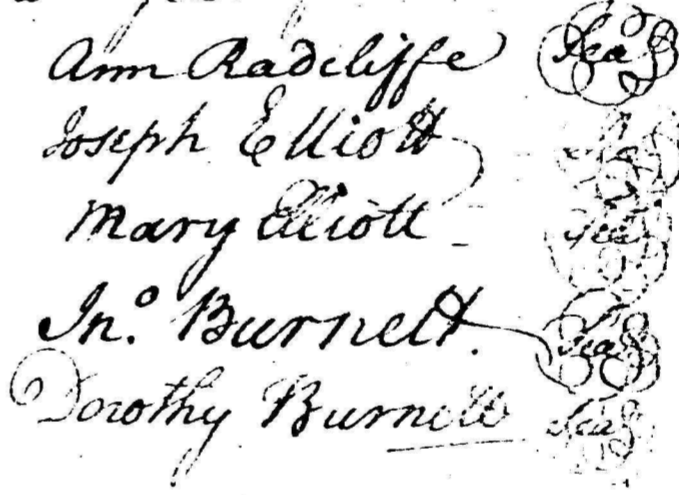 Ann Radcliffe Seal
Joseph Elliott Seal
Mary Elliott Seal
Jn.o Burnett. Seal
Dorothy Burnett Seal